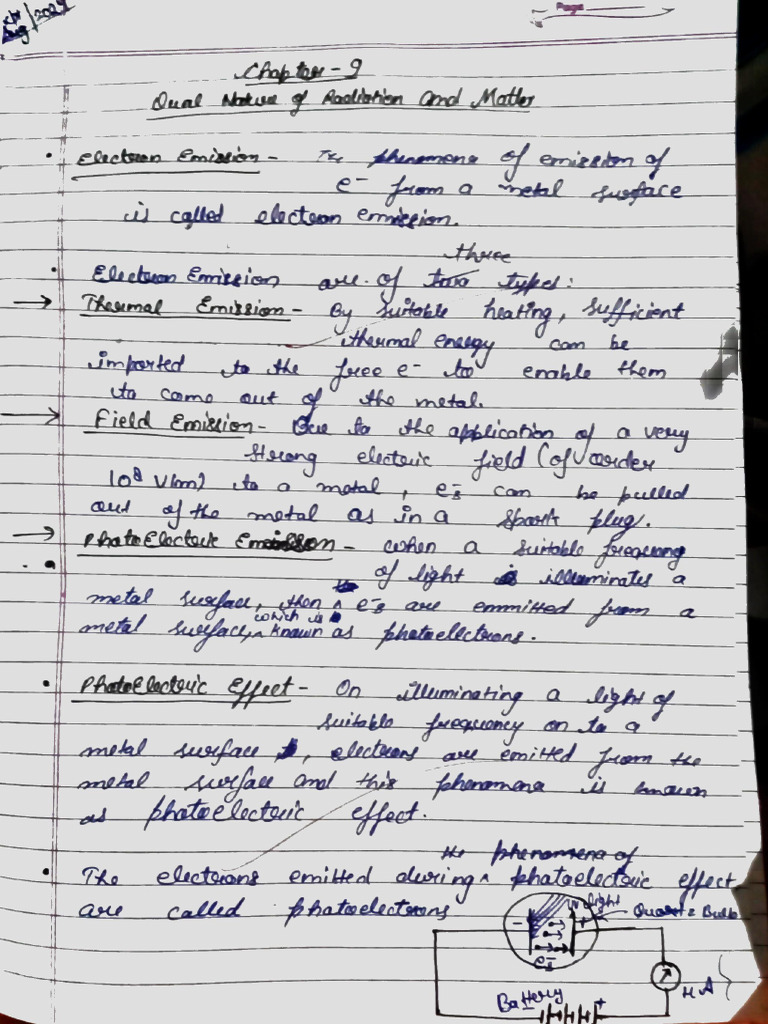 Aug/2024
Page
Chapter - 9
Dual Nature of Radiation and Matter
• Electron Emission - The phenomena of emission of
e- from a metal surface
is called electron emission.
three
• Electron Emission are of two types:
→ Thermal Emission - By suitable heating, sufficient
thermal energy can be
imported to the free e- to enable them
to come out of the metal.
→ Field Emission - Due to the application of a very
strong electric field (of order
10⁸ V/m) to a metal, e-s can be pulled
out of the metal as in a spark plug.
→ PhotoElectric Emission - when a suitable frequency
of light illuminates a
metal surface, then the e-s are emmitted from a
metal surface, which is known as photoelectrons.
• PhotoElectric Effect - On illuminating a light of
suitable frequency on to a
metal surface, electrons are emitted from the
metal surface and this phenomena is known
as photoelectric effect.
the phenomena of
• The electrons emitted during ^ photoelectric effect
are called photoelectrons
UV light
Quartz Bulb
- +
e-s
μA
Battery
- +